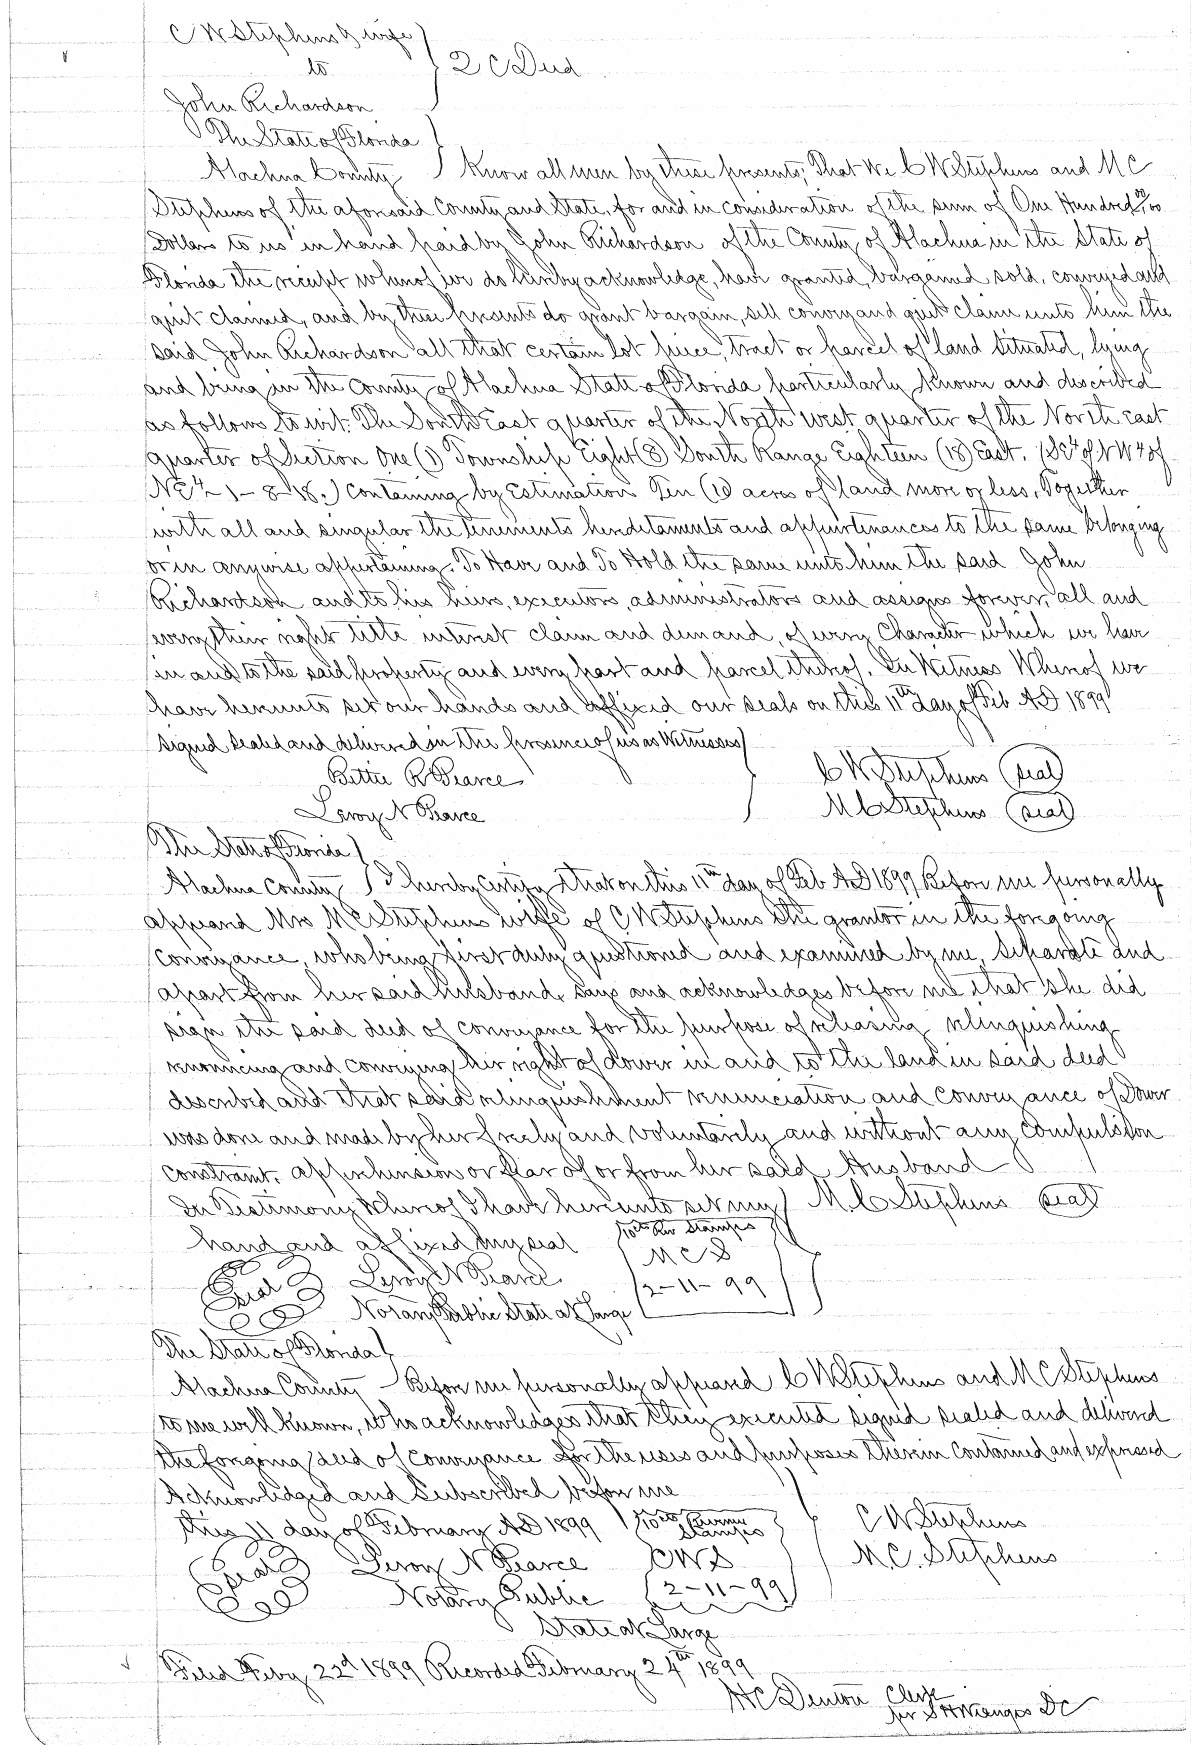 C W Stephens & wife
to
2 C Deed
John Richardson
The State of Florida
Alachua County Know all men by these presents, That We C W Stephens and M C
Stephens of the aforsaid County and State, for and in consideration of the sum of One Hundred 00/100
Dollars to us in hand paid by John Richardson of the County of Alachua in the State of
Florida the receipt whereof we do hereby acknowledge, have granted, bargained sold, conveyed and
quit claimed, and by these presents do grant bargain, sell convey and quit claim unto him the
said John Richardson all that certain lot piece, tract or parcel of land situated, lying
and being in the County of Alachua State of Florida particularly known and described
as follows to wit: The South East quarter of the North west quarter of the North East
quarter of Section One (1) Township Eight (8) South Range Eighteen (18) East. (SE4 of NW4 of
NE4 - 1 - 8 - 18.) Containing by Estimation Ten (10) acres of land more or less, Together
with all and singular the tenements hereditaments and appurtenances to the same belonging
or in anywise appertaining. To Have and To Hold the same unto him the said John
Richardson and to his heirs, executors, administrators and assigns forever, all and
every their right title interest claim and demand, of every Character which we have
in and to the said property and every part and parcel thereof. In Witness Whereof we
have hereunto set our hands and affixed our seals on this 11th day of Feb AD 1899
Signed Sealed and delivered in the presence of us as Witnesses
Bettie R Pearce C W Stephens (seal)
Leroy N Pearce M C Stephens (seal)
The State of Florida
Alachua County I hereby Certify that on this 11th day of Feb AD 1899 Before me personally
appeard Mrs M C Stephens wife of C W Stephens the grantor in the foregoing
conveyance, who being first duly questioned and examined by me, separate and
apart from her said husband, says and acknowledges before me that she did
sign the said deed of conveyance for the purpose of releasing relinquishing
renouncing and conveying her right of dower in and to the land in said deed
described and that said relinquishment renunciation and conveyance of Dower
was done and made by her freely and voluntarily and without any Compulsion
constraint, apprehension or fear of or from her said Husband
In Testimony Whereof I have hereunto set my M. C Stephens seal
hand and affixed my seal 10cts Rev Stamps
M C S
Seal Leroy N Pearce 2-11-99
Notary Public State at Large
The State of Florida
Alachua County - Before me personally appeared C W Stephens and M C Stephens
to me well known, who acknowledges that they executed signed sealed and delivered
the foregoing deed of conveyance for the uses and purposes therein contained and expressed
Acknowledged and Subscribed before me
this 11 day of February AD 1899 10cts Revenue Stamps C W Stephens
Seal Leroy N Pearce CWS M.C. Stephens
Notary Public 2-11-99
State at Large
Filed Feby 22d 1899 Recorded February 24th 1899
H C Denton Clerk
per DC